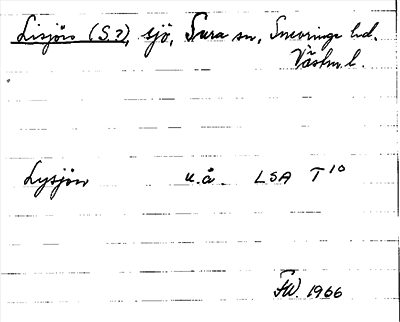 Lisjön (S.?), sjö, Sura sn, Snevringe hd.
Västm. l.
Lysjön u.å. LSA T10
FW. 1966